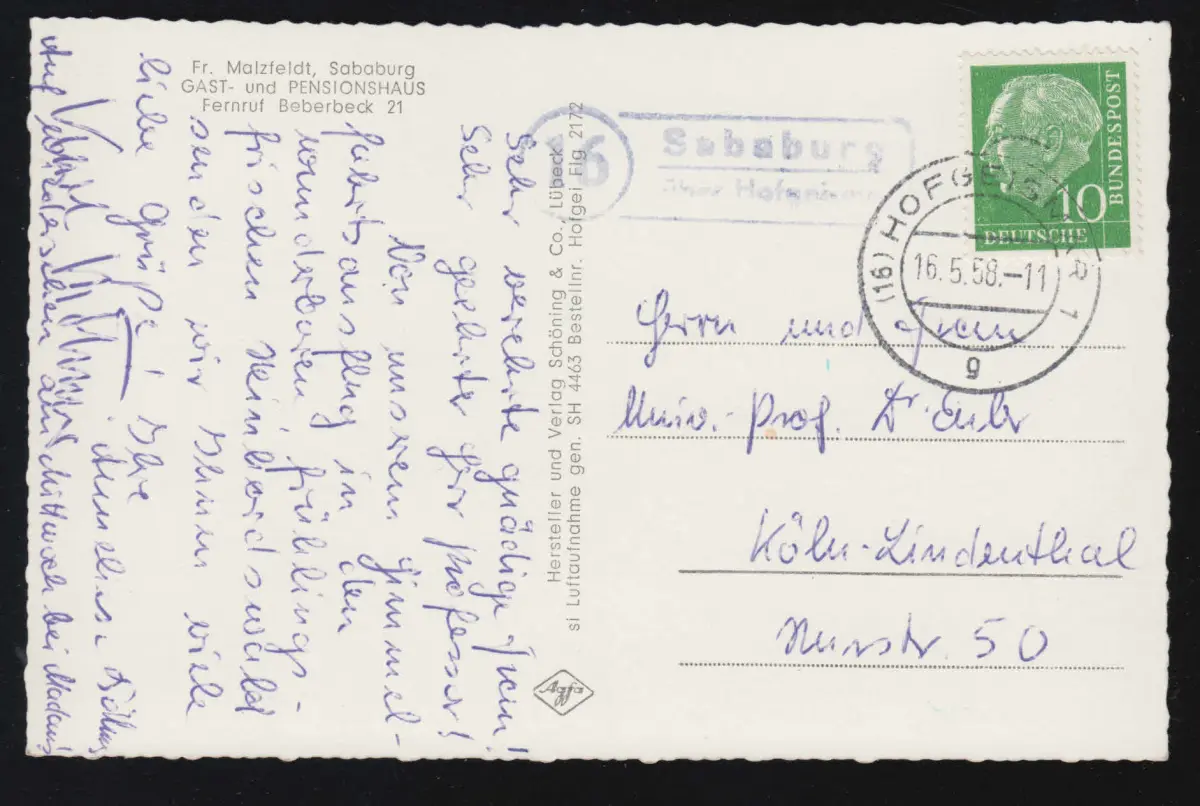 Fr. Malzfeldt, Sababurg
GAST- und PENSIONSHAUS
Fernruf Beberbeck 21
16
Sababurg
über Hofgeismar
(16) HOFGEISMAR 1
16.5.58.-11
g
10
BUNDESPOST
DEUTSCHE
Sehr verehrte gnädige Frau!
Sehr geehrter Herr Professor!
Von unserem Himmel-
fahrtsausflug in den
wunderbaren frühlings-
frischen Reinhardswald
senden wir Ihnen viele
liebe Grüße! Ihre
Auf Wiedersehen am Mittwoch bei Madaus
Hersteller und Verlag Schöning & Co., Lübeck
si Luftaufnahme gen. SH 4463 Bestellnr. Hofgei Flg 2172
Agfa
Herrn und Frau
Univ.-Prof. Dr
Köln-Lindenthal
50